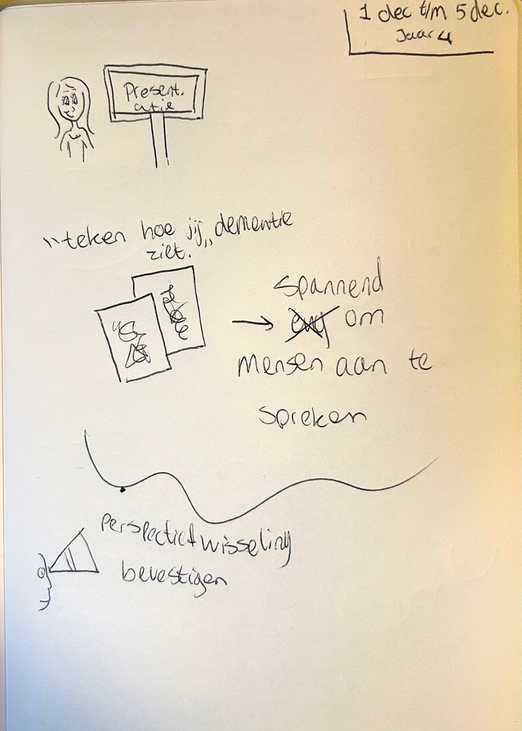 1 dec t/m 5 dec.
Jaar 4
Present.
atie
"teken hoe jij dementie
ziet."
spannend
om
mensen aan te
spreken
perspectief wisseling
bevestigen